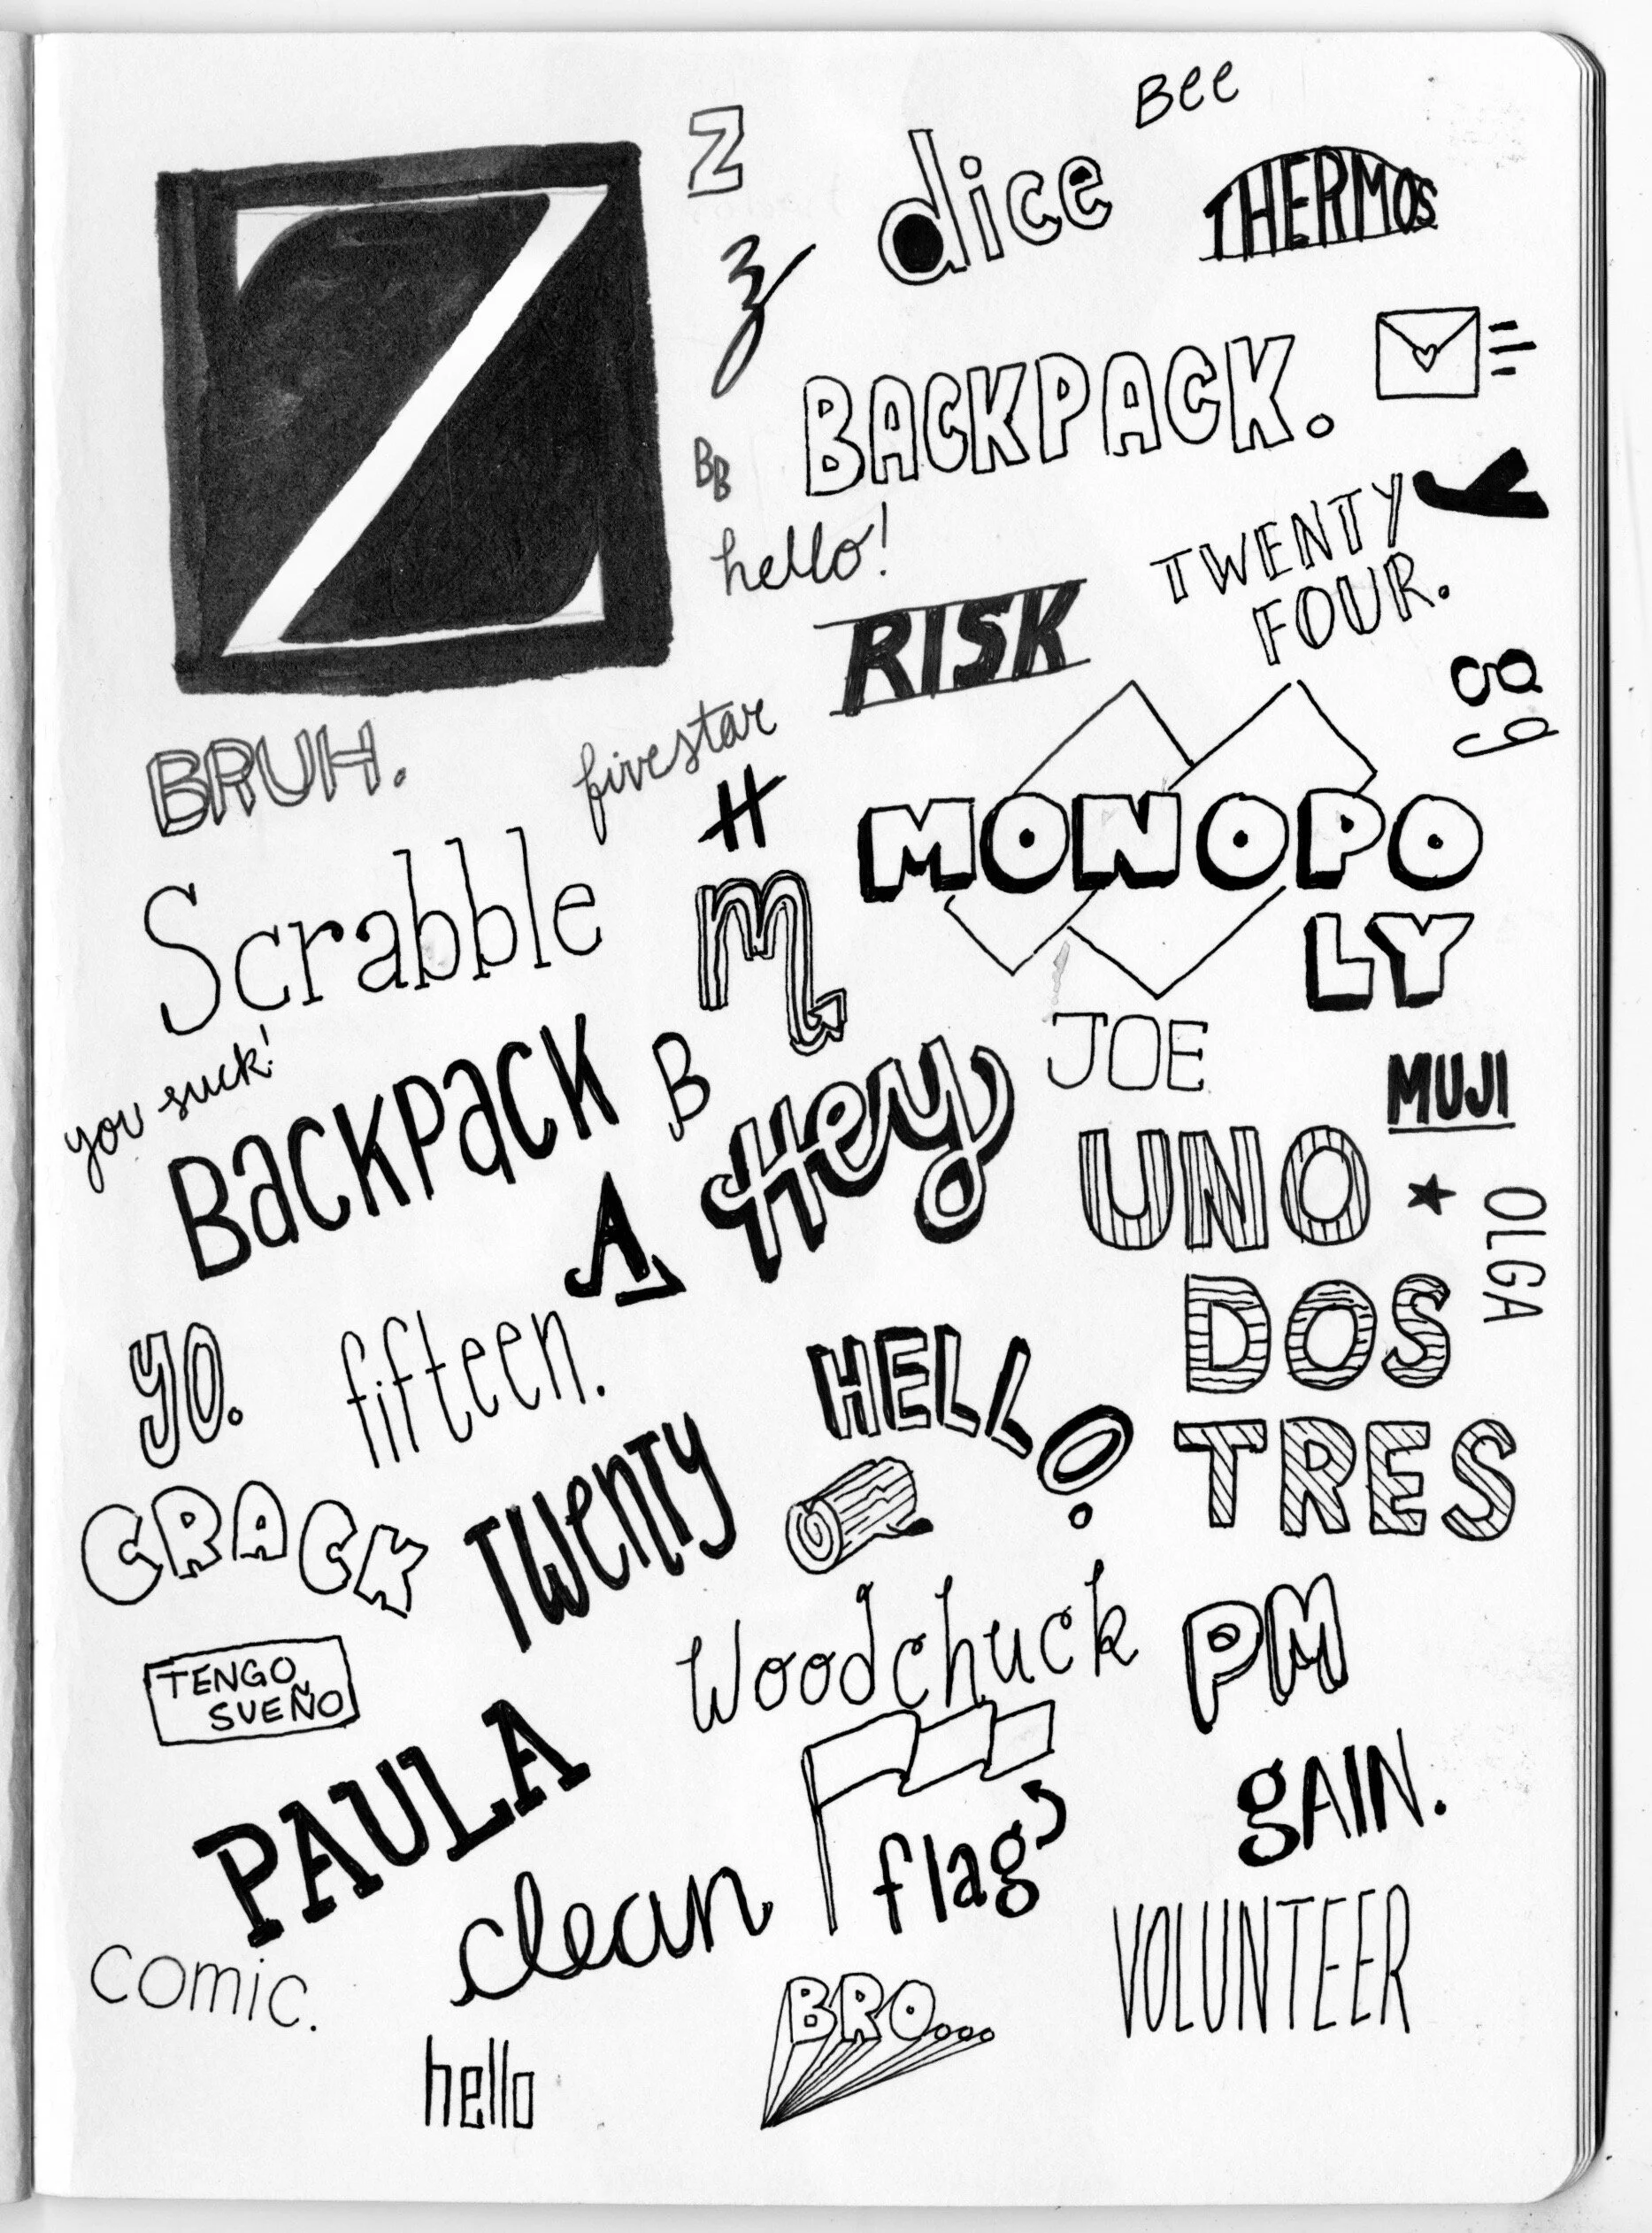 Z
Z
z
Bee
dice
THERMOS
BACKPACK.
BB
hello!
y
TWENTY
FOUR.
RISK
g
g
BRUH.
fivestar
H
MONOPO
LY
Scrabble
m
you suck!
BACKPACK
B
Hey
JOE
MUJI
UNO
OLGA
A
DOS
yo.
fifteen.
HELLO
TRES
CRACK
TWENTY
Woodchuck
PM
TENGO
SUEÑO
PAULA
flag
gAIN.
clean
VOLUNTEER
comic.
BRO...
hello